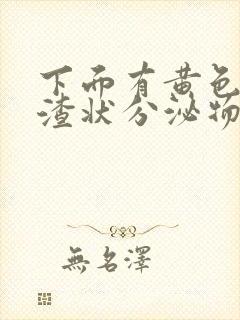 下而有黄色
渣状分泌物
無名澤